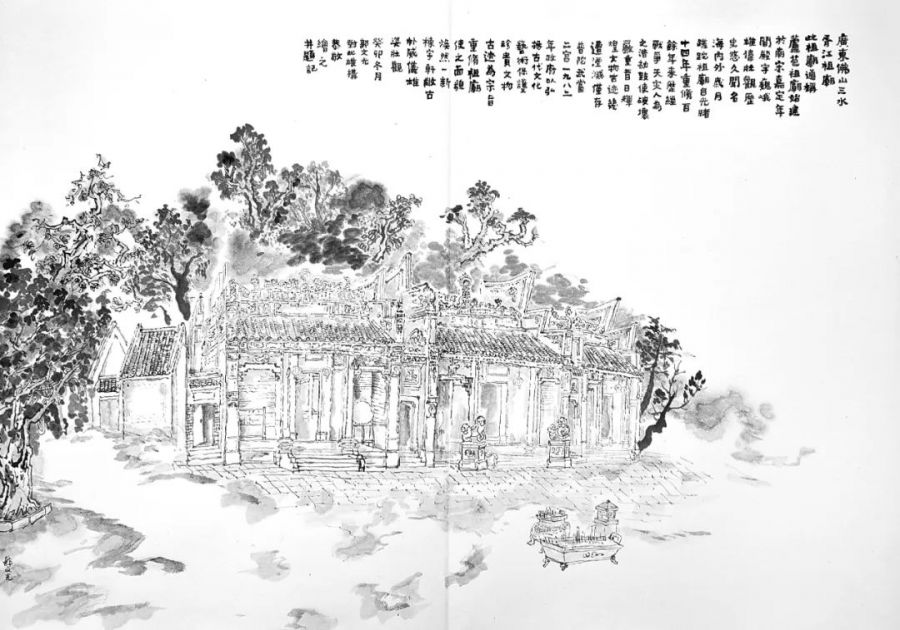 廣東佛山三水
胥江祖廟
此祖廟通稱
蘆苞祖廟始建
於南宋嘉定年
間殿宇巍峨
雄偉壯觀歷
史悠久聞名
海內外歲月
蹉跎祖廟自光緒
十四年重修百
餘年來歷經
戰爭天灾人為
之浩劫致使破壞
嚴重昔日輝
煌文物古迹幾
遭湮滅僅存
普陀武當
二宮一九八二
年政府以弘
揚古代文化
藝術保護
珍貴文物
古迹為宗旨
重修祖廟
使之面貌
煥然一新
棟宇軒敞古
朴威儀雄
姿壯觀
癸卯冬月
郭文光
對此雄構
恭敬
繪之
并題記